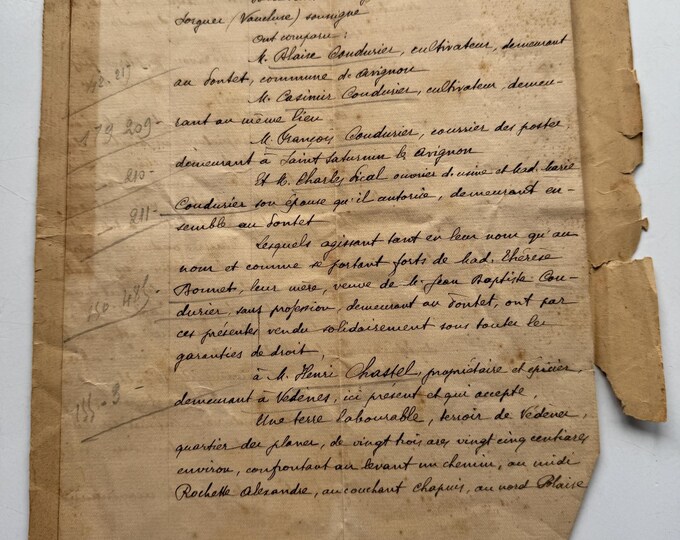 Sorgues (Vaucluse) soussigné
Ont comparu :
M. Blaise Coudurier, cultivateur, demeurant
au Pontet, commune de Avignon
M. Casimir Coudurier, cultivateur, demeu-
rant au même lieu
M. François Coudurier, courrier des postes,
demeurant à Saint Saturnin les Avignon
Et M. Charles Fical ouvrier d'usine et Mad. Marie
Coudurier son épouse qu'il autorise, demeurant en-
semble au Pontet
Lesquels agissant tant en leur nom qu'au
nom et comme se portant forts de Mad. Thérèse
Bonnet, leur mère, veuve de M. Jean Baptiste Cou-
durier, sans profession, demeurant au Pontet, ont par
ces présentes vendu solidairement sous toutes les
garanties de droit,
à M. Henri Chastel, propriétaire et épicier,
demeurant à Vedènes, ici présent et qui accepte,
Une terre labourable, terroir de Vedènes,
quartier des planes, de vingt trois ares vingt cinq centiares
environ, confrontant au levant un chemin, au midi
Rochette Alexandre, au couchant Chapuis, au nord Blaise
217 -
79 209 -
210 -
211 -
150 485 -
155 - 3 -